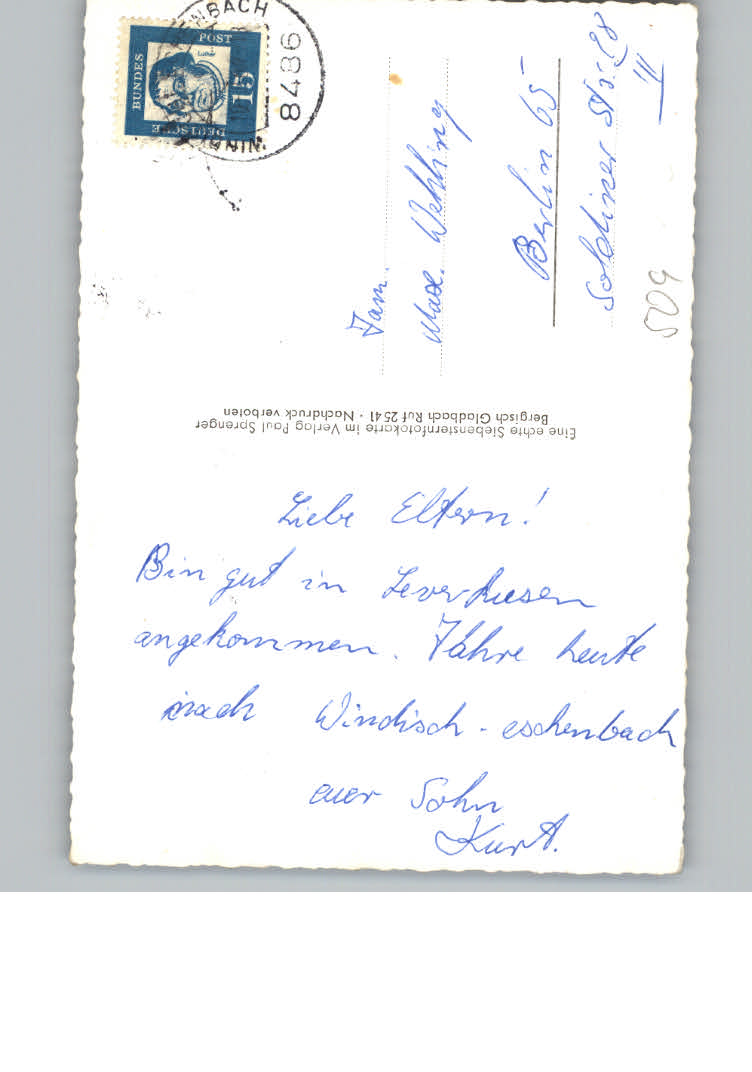 ENBACH
8486
WIN
DEUTSCHE
BUNDES
POST
15
Luther
Fam.
Max. Wehling
Berlin 65
Soldiner Str. 28
III
509
Eine echte Siebensternfotokarte im Verlag Paul Sprenger
Bergisch Gladbach Ruf 2541 · Nachdruck verboten
Liebe Eltern!
Bin gut in Leverkusen
angekommen. Fahre heute
nach Windisch-eschenbach
euer Sohn
Kurt.